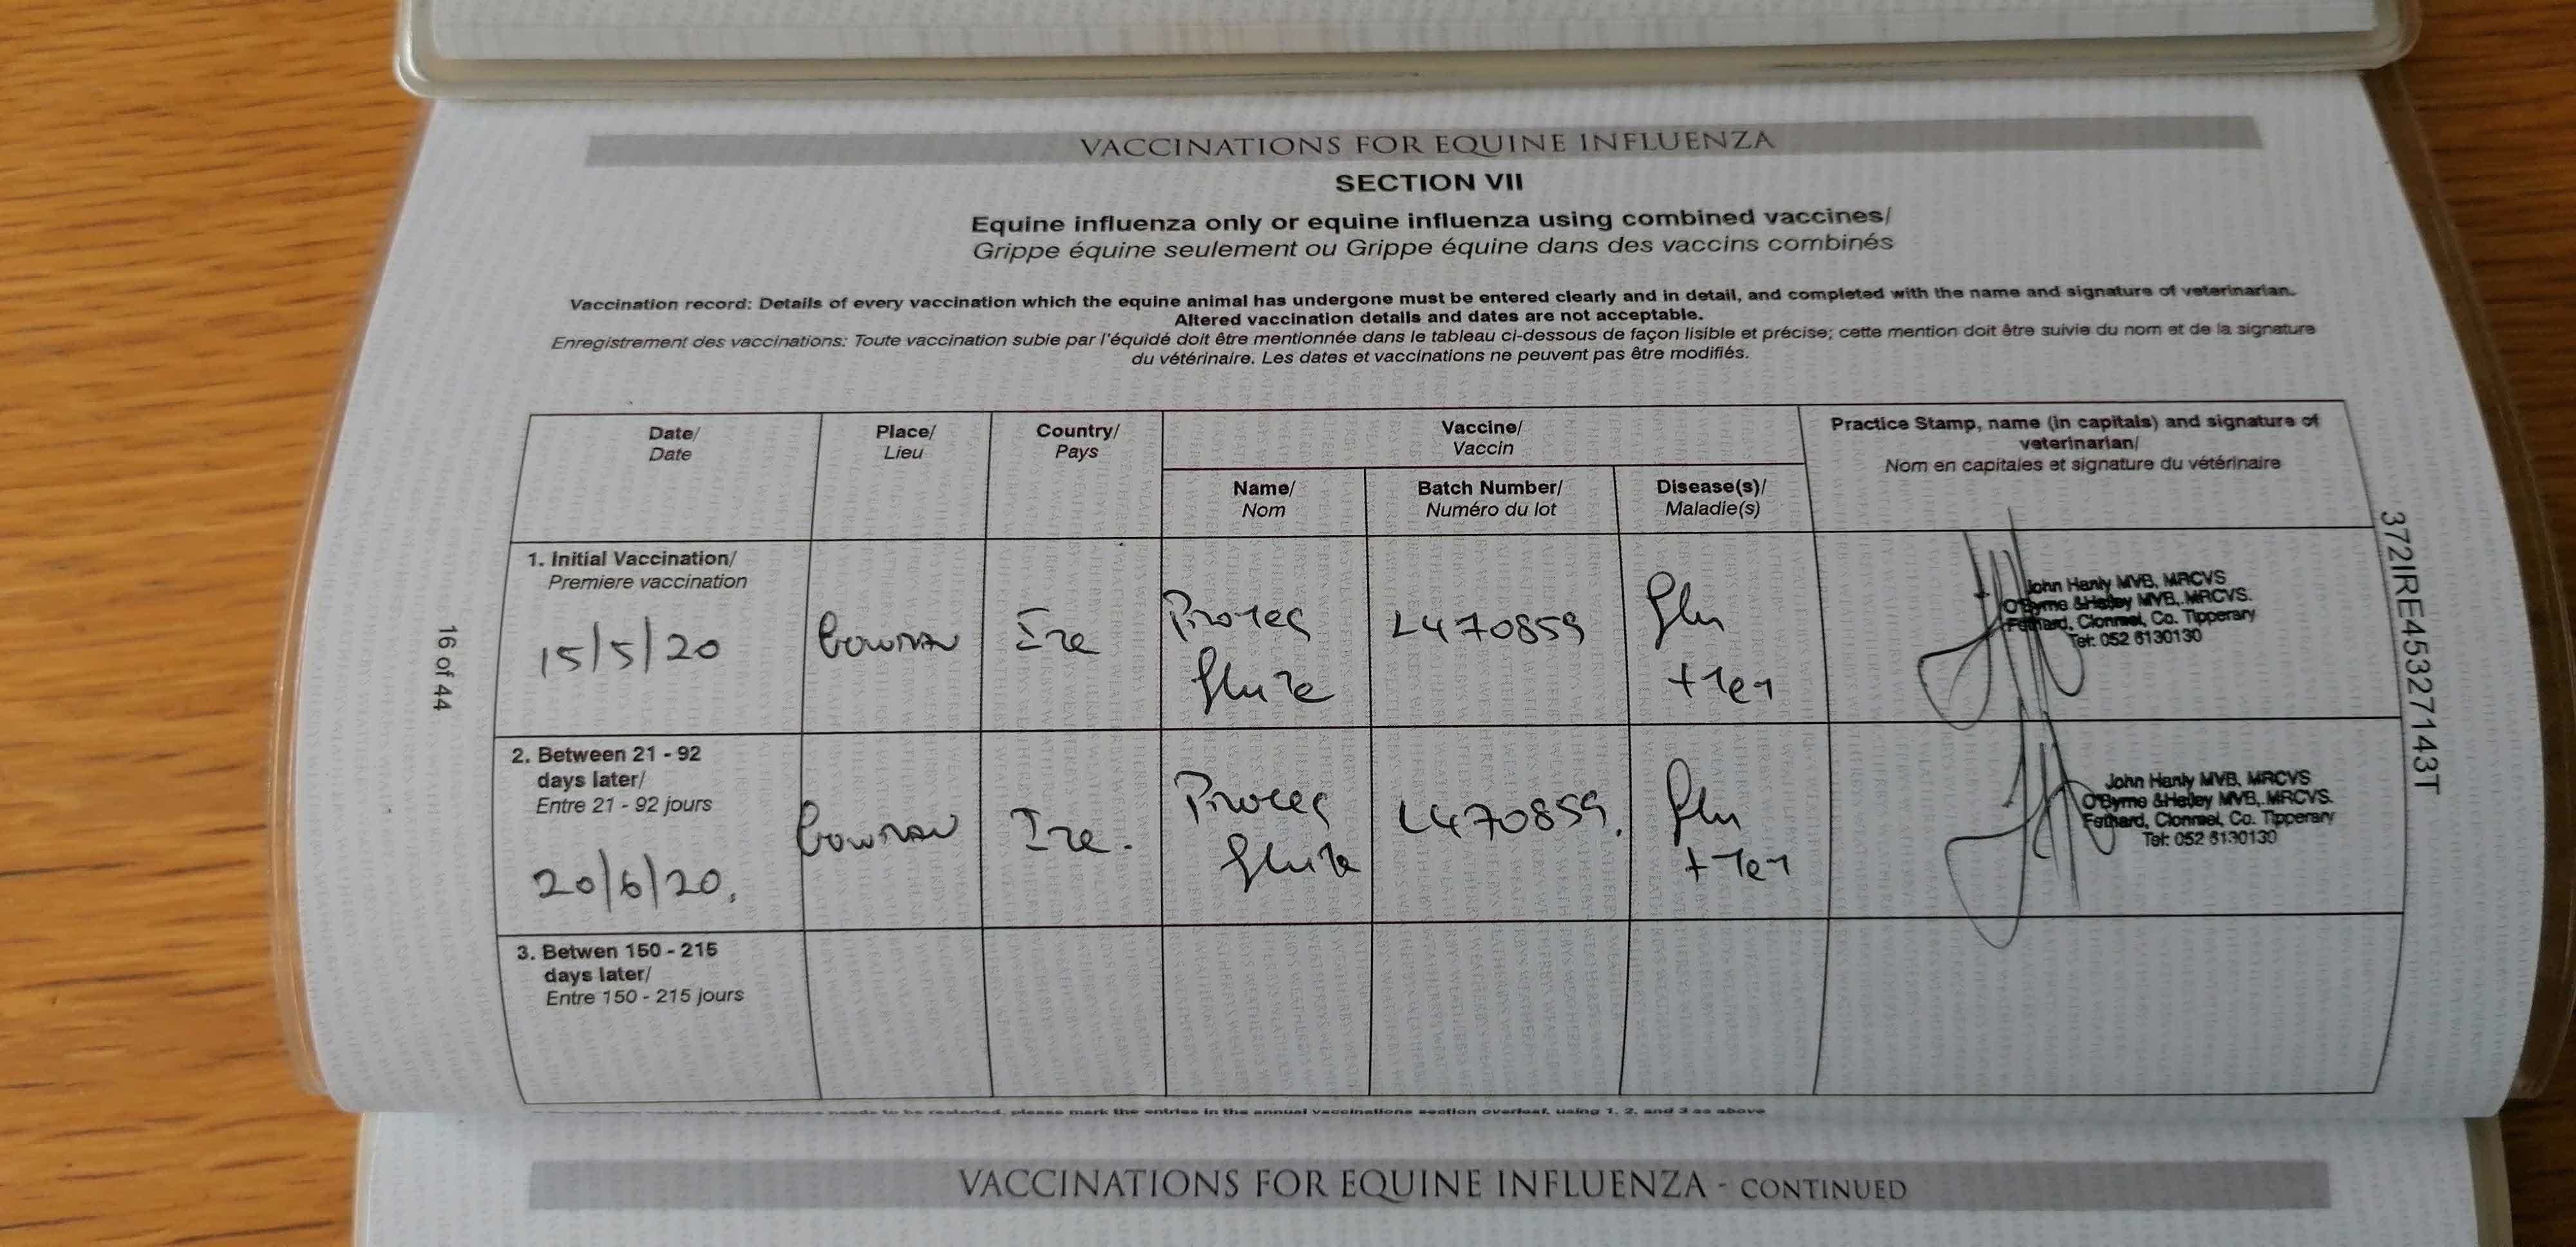 VACCINATIONS FOR EQUINE INFLUENZA
SECTION VII
Equine influenza only or equine influenza using combined vaccines/
Grippe équine seulement ou Grippe équine dans des vaccins combinés
Vaccination record: Details of every vaccination which the equine animal has undergone must be entered clearly and in detail, and completed with the name and signature of veterinarian.
Altered vaccination details and dates are not acceptable.
Enregistrement des vaccinations: Toute vaccination subie par l'équidé doit être mentionnée dans le tableau ci-dessous de façon lisible et précise; cette mention doit être suivie du nom et de la signature
du vétérinaire. Les dates et vaccinations ne peuvent pas être modifiés.
Date/
Date
Place/
Lieu
Country/
Pays
Vaccine/
Vaccin
Name/
Nom
Batch Number/
Numéro du lot
Disease(s)/
Maladie(s)
Practice Stamp, name (in capitals) and signature of
veterinarian/
Nom en capitales et signature du vétérinaire
1. Initial Vaccination/
Premiere vaccination
15/5/20
Gowran
Ire
Proteq
Flu Te
L470859
Flu
+ Tet
John Hanly MVB, MRCVS
O'Byrne & Halley MVB, MRCVS.
Fethard, Clonmel, Co. Tipperary
Tel: 052 6130130
2. Between 21 - 92
days later/
Entre 21 - 92 jours
20/6/20.
Gowran
Ire.
Proteq
Flu Te
L470859.
Flu
+ Tet
John Hanly MVB, MRCVS
O'Byrne & Halley MVB, MRCVS.
Fethard, Clonmel, Co. Tipperary
Tel: 052 6130130
3. Betwen 150 - 215
days later/
Entre 150 - 215 jours
needs to be restarted, please mark the entries in the annual vaccinations section overleaf, using 1, 2, and 3 as above
16 of 44
372IRE45327143T
VACCINATIONS FOR EQUINE INFLUENZA - CONTINUED